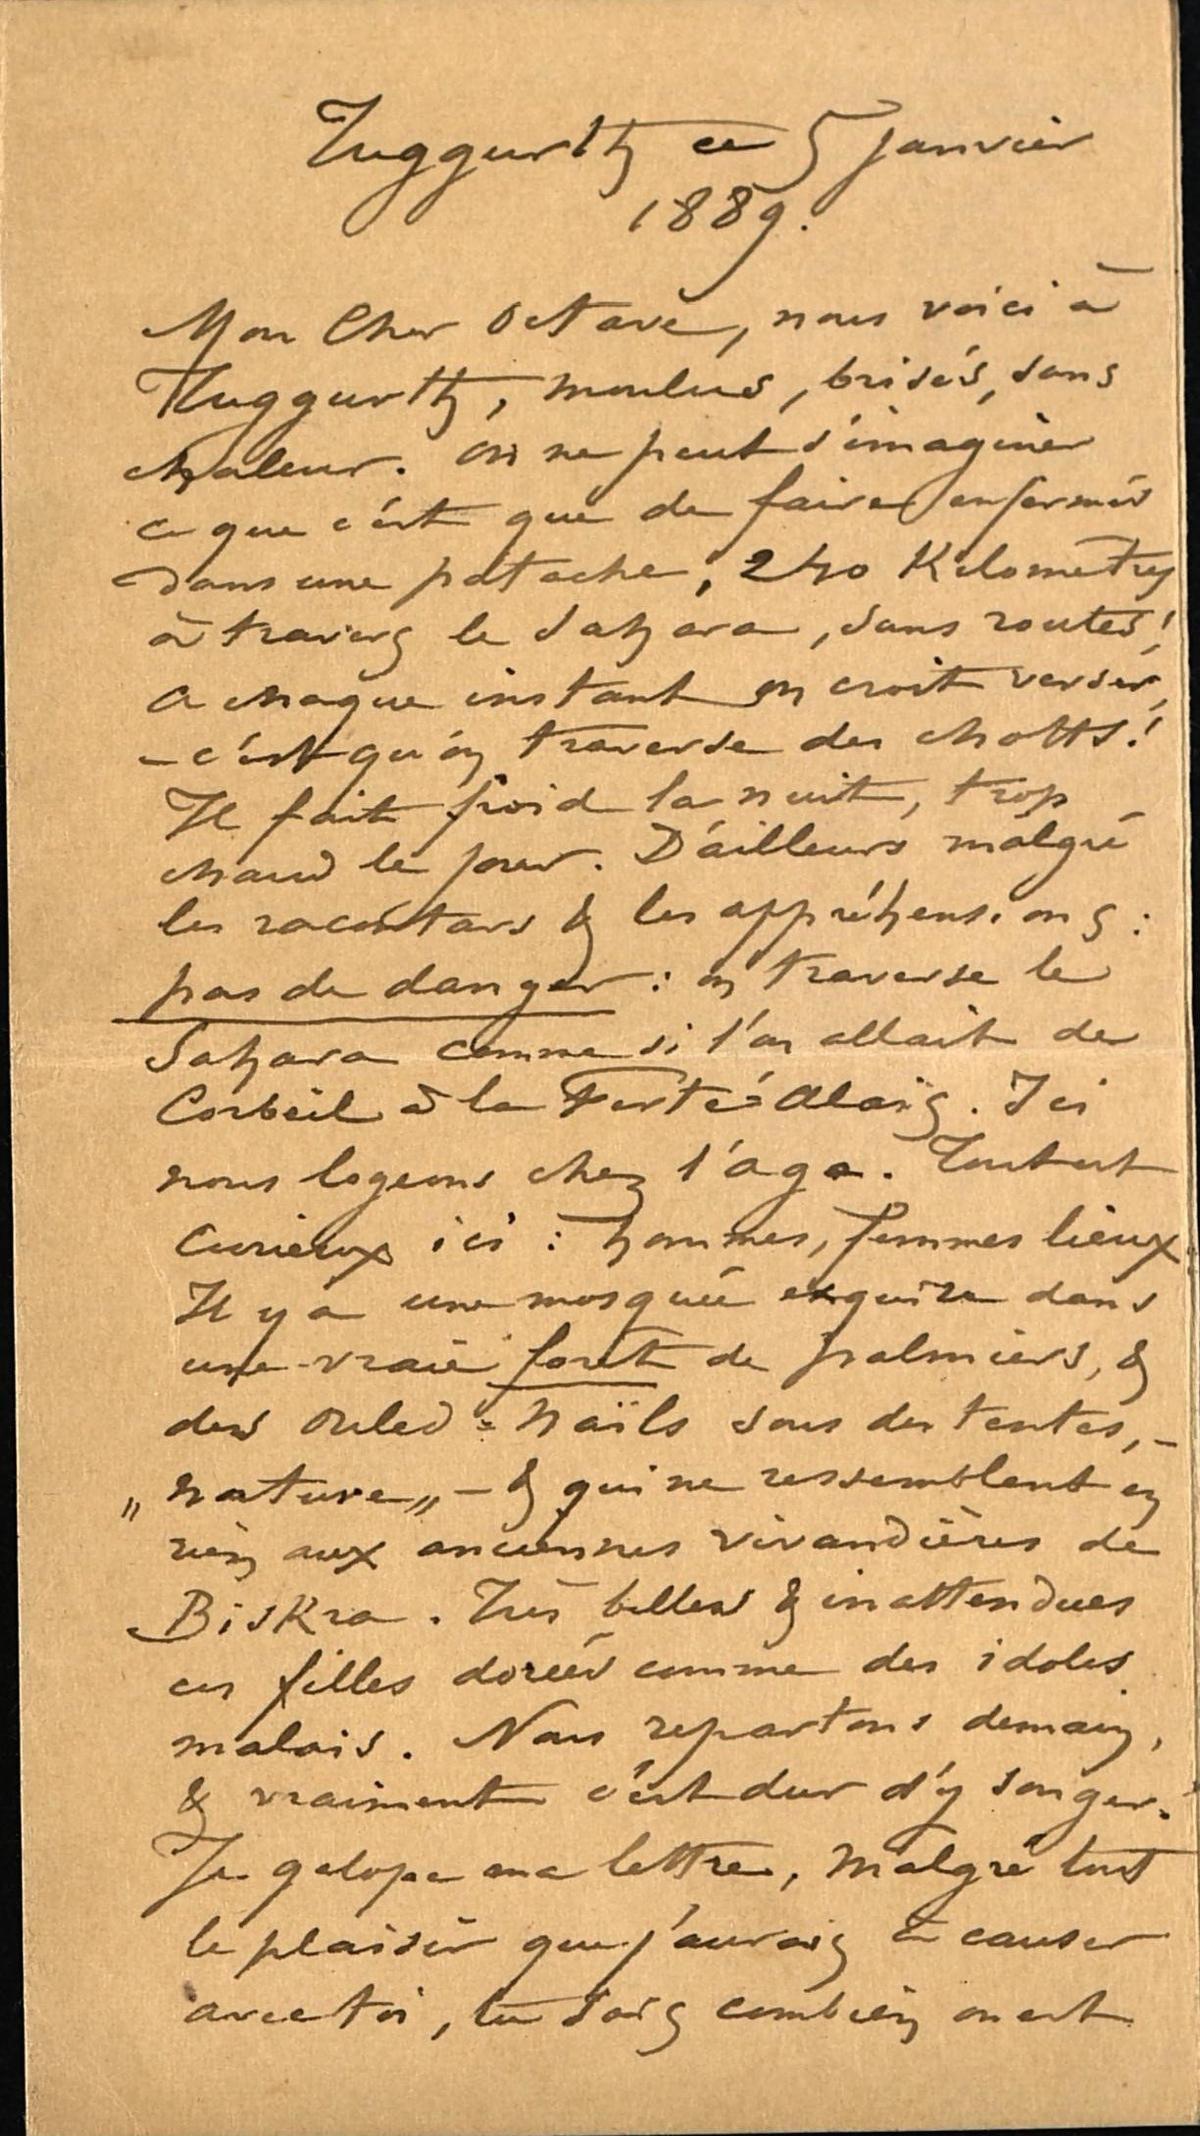 Tuggurth ce 5 janvier
1889.
Mon Cher Octave, nous voici à
Tuggurth, moulus, brisés, sans
chaleur. On ne peut s'imaginer
ce que c'est que de faire enfermés
dans une patache, 240 Kilometres
à travers le Sahara, sans routes!
a chaque instant on croit verser,
– c'est qu'on traverse des chotts!
Il fait froid la nuit, trop
chaud le jour. D'ailleurs malgré
les racontars & les appréhensions:
pas de danger: on traverse le
Sahara comme si l'on allait de
Corbeil à la Ferté=Alais. Ici
nous logeons chez l'aga. Tout est
curieux ici: hommes, femmes lieux.
Il y a une mosquée exquise dans
une vraie forêt de palmiers, &
des Ouled=Naïls sous des tentes, –
„nature„ – & qui ne ressemblent en
rien aux anciennes vivandières de
Biskra. Très belles & inattendues
ces filles dorées comme des idoles
malais. Nous repartons demain,
& vraiment c'est dur d'y songer.
Je galope ma lettre, malgré tout
le plaisir que j'aurais à causer
avec toi, tu sais combien on est